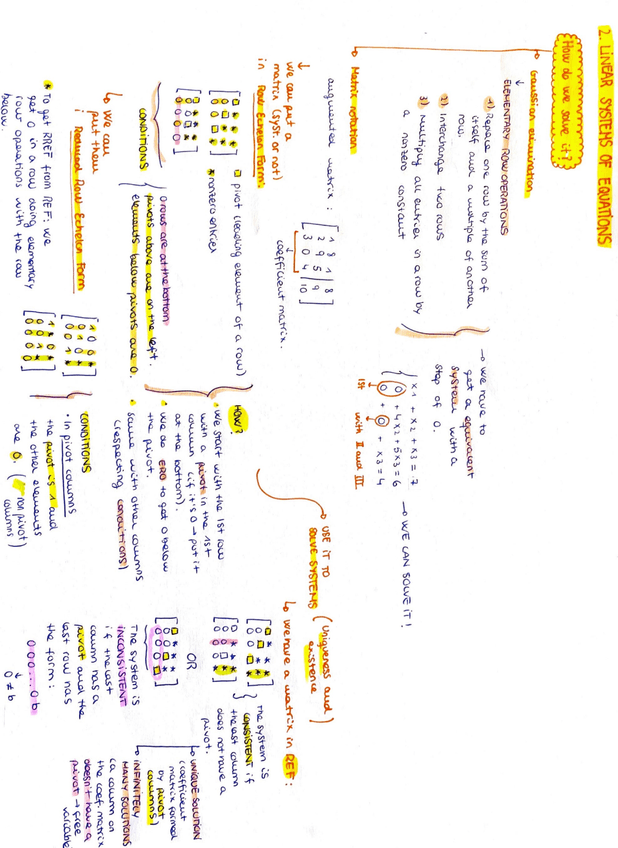 2. LINEAR SYSTEMS OF EQUATIONS
How do we solve it?
→ Gaussian elimination
↓
ELEMENTARY ROW OPERATIONS
1) Replace one row by the sum of
itself and a multiple of another
row.
2) Interchange two rows
3) Multiply all entries in a row by
a nonzero constant
→ We have to
get a equivalent
system with a
stop of 0.
x1 + x2 + x3 = 7
0 + 4x2 + 5x3 = 6
0 + x3 = 4
1st with II and III
→ WE CAN SOLVE IT!
→ Matrix notation
augmented matrix:
1 8 1 | 8
2 9 5 | 9
3 0 4 | 10
coefficient matrix.
↓
We can put a
matrix (syst. or not)
in Row Echelon Form:
□ pivot (leading element of a row)
* nonzero entries
CONDITIONS
0 rows are at the bottom
pivots above are on the left.
elements below pivots are 0.
HOW?
• We start with the 1st row
with a pivot in the 1st
column (if it's 0 → put it
at the bottom).
• We do ERO to get 0 below
the pivot.
• Same with other columns
(respecting conditions)
↳ We can
put them
Reduced Row Echelon Form
* To get RREF from REF: we
get 0 in a row doing elementary
row operations with the row
below.
CONDITIONS
• In pivot columns
the pivot is 1 and
the other elements
are 0. (non pivot
columns)
→ USE IT TO
SOLVE SYSTEMS (Uniqueness and
existence)
↳ We have a matrix in REF:
The system is
CONSISTENT if
the last column
does not have a
pivot.
↳ UNIQUE SOLUTION
(coefficient
matrix formed
by pivot
columns)
↳ INFINITELY
MANY SOLUTIONS
a column on
the coef. matrix
doesn't have a
pivot → free
variable
OR
The system is
INCONSISTENT
if the last
column has a
pivot and the
last row has
the form:
0 0 0 ... 0 b
↓
0 ≠ b